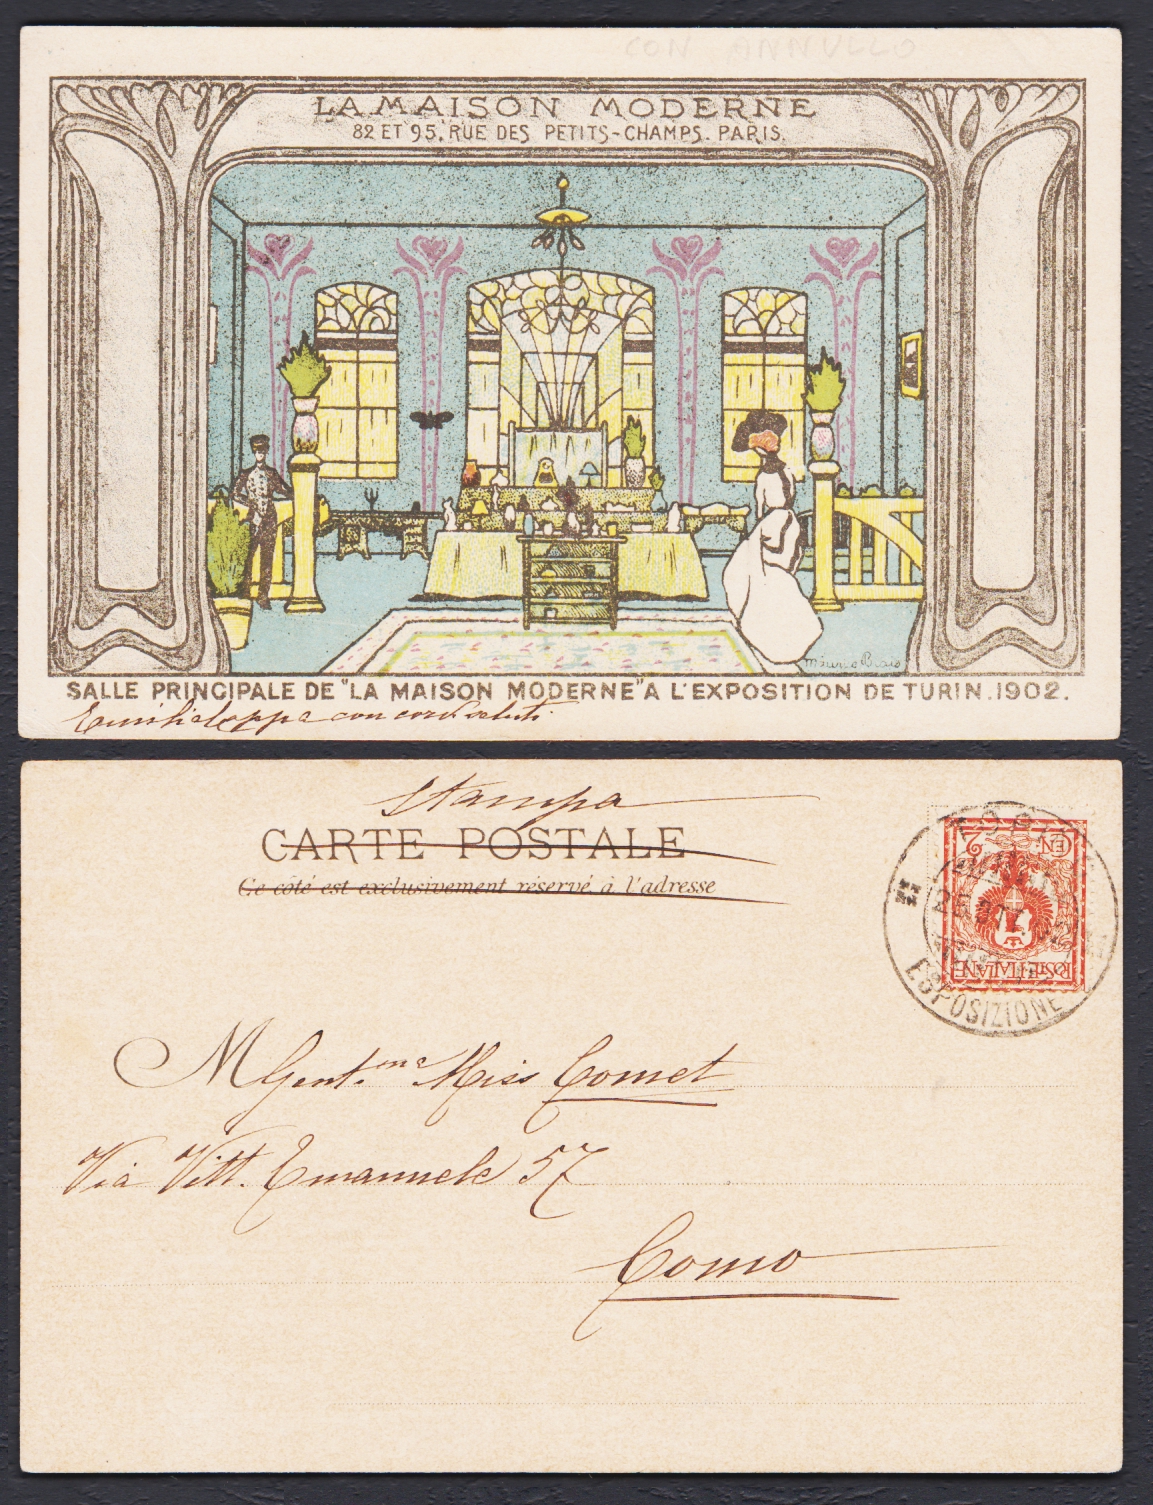 CON ANNULLO
LA MAISON MODERNE
82 ET 95, RUE DES PETITS-CHAMPS. PARIS.
SALLE PRINCIPALE DE "LA MAISON MODERNE" A L'EXPOSITION DE TURIN. 1902.
con cordi saluti
stampa
CARTE POSTALE
Ce côté est exclusivement réservé à l'adresse
CEN. 2
POSTE ITALIANE
TORINO
ESPOSIZIONE
M Gent.ma Miss Comet
Via Vitt. Emanuele 57
Como